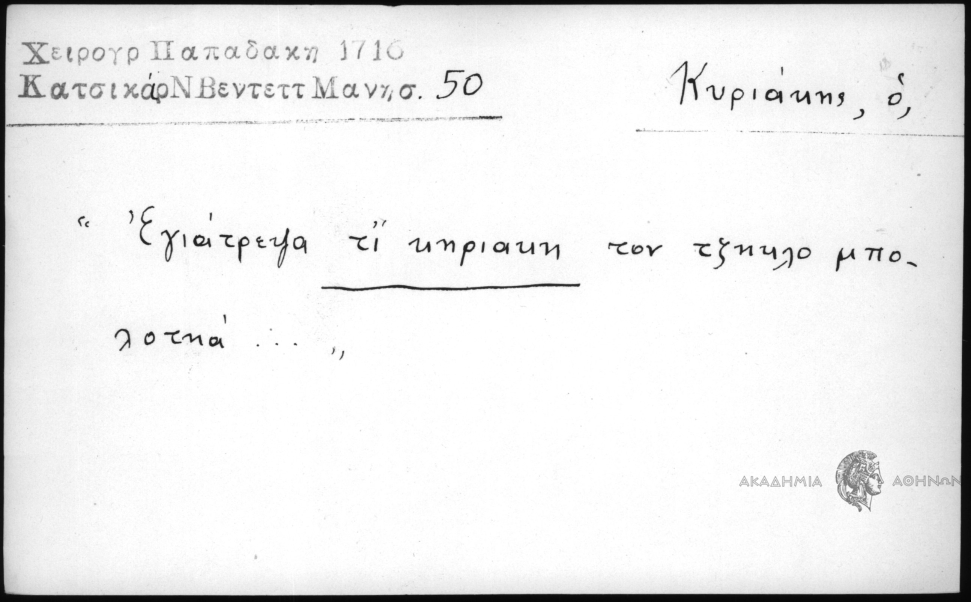 Χειρογρ Παπαδακη 1716
ΚατσικάρΝΒεντεττ Μανης. 50
Κυριάκης, ὁ,
“ Ἐγιάτρεψα τἲ κηριακη τον τζηκλο μπο-
λοτηά ... „
ΑΚΑΔΗΜΙΑ ΑΘΗΝΩΝ